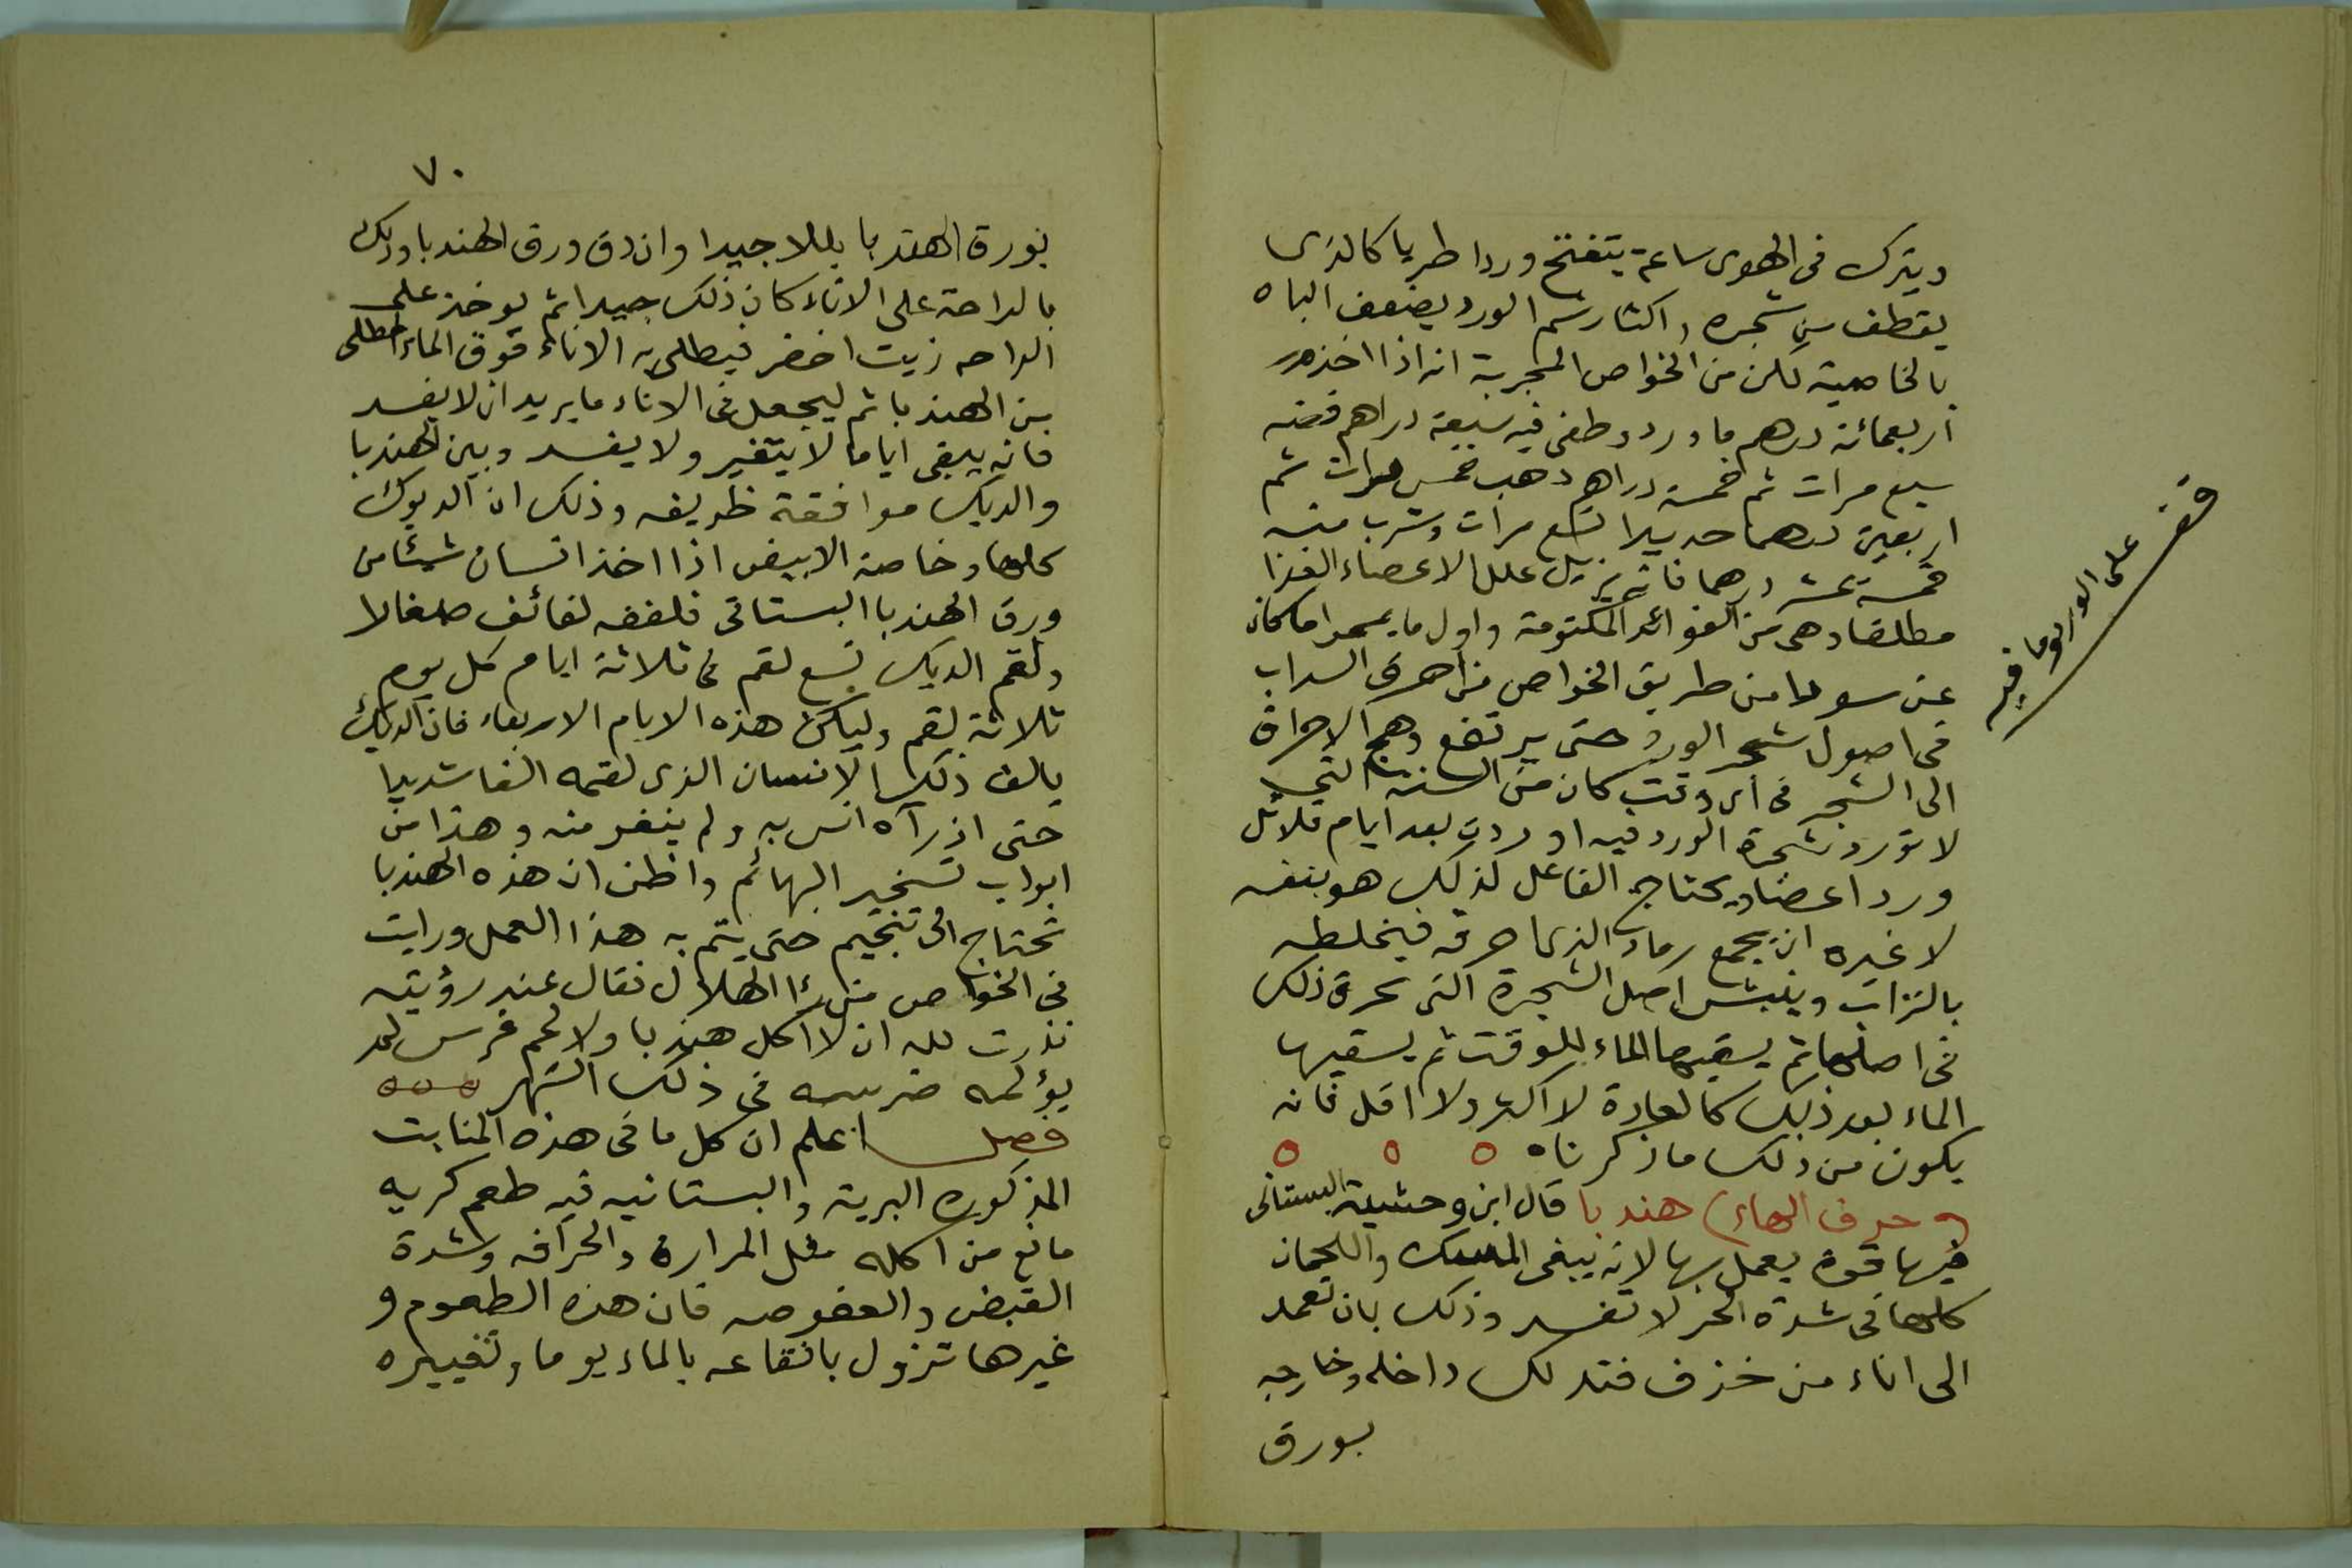 ويترك فى الهوى ساعة يتفتح وردا طريا كالذى
يقطف من شجره واكثار شم الورد يضعف الباه
بالخاصية لكن من الخواص المجربة انه اذا اخذ
اربعمائة درهم ماورد وطفى فيه سبعة دراهم فضه
سبع مرات ثم خمسة دراهم ذهب خمس مرات ثم
اربعين درهما حديدا تسع مرات وشرب منه
خمسة عشر درهما فانه يزيل علل الاعضاء الغذا
مطلقا وهى من الفوائد المكتومة واول ما
عن من طريق الخواص من احرق السداب
فى اصول شجر الورد حتى يرتفع وهج الاحراق
الى الشجر فى اى وقت كان من السنة التى
لا تورد شجرة الورد فيه اوردت بعد ايام قلائل
وردا غضا ويحتاج الفاعل لذلك هو بنفسه
لا غيره ان يجمع رماد الذى احرقه فيخلطه
بالتراب وينبش اصل الشجرة التى حرق ذلك
فى اصلها ثم يسقيها الماء للوقت ثم يسقيها
الماء بعد ذلك كالعادة لا اكثر ولا اقل فانه
يكون من ذلك ما ذكرناه
حرف الهاء) هندبا قال ابن وحشية البستانى
فيها قوة يعمل بها لانه يبقى السمك واللحمان
كلها فى شدة الحر لا تفسد وذلك بان تعمد
الى اناء من خزف فتدلك داخله وخارجه
بورق
قف على الورد وما فيه
٧٠
بورق الهندبا بللا جيدا وان دق ورق الهندبا ودلك
بالراحة على الاناء كان ذلك جيدا ثم يوخذ على
الراحه زيت اخضر فيطلى به الاناء فوق الماء المطلى
من الهندبا ثم ليجعل فى الاناء ما يريد ان لا يفسد
فانه يبقى اياما لا يتغير ولا يفسد وبين الهندبا
والديك موافقة ظريفه وذلك ان الديوك
كلها وخاصة الابيض اذا اخذ انسان شيئا من
ورق الهندبا البستانى فلففه لفائف صغارا
ولقم الديك تسع لقم فى ثلاثة ايام كل يوم
ثلاثة لقم وليكن هذه الايام الاربعاء فان الديك
يالف ذلك الانسان الذى لقمه الفا شديدا
حتى اذ رآه انس به ولم ينفر منه وهذا من
ابواب تسخير البهائم واظن ان هذه الهندبا
تحتاج الى تنجيم حتى يتم به هذا العمل ورايت
فى الخواص من رئا الهلال فقال عند رؤيته
نذرت لله ان لا اكل هندبا ولا لحم فرس لم
يؤلمه ضرسه فى ذلك الشهر
فصل اعلم ان كل ما فى هذه المنابت
المذكوره البرية والبستانيه فيه طعم كريه
مانع من اكله مثل المرارة والحرافه وشدة
القبض والعفوصه فان هذه الطعوم و
غيرها تزول بانقاعه بالماء يوما وتغييره